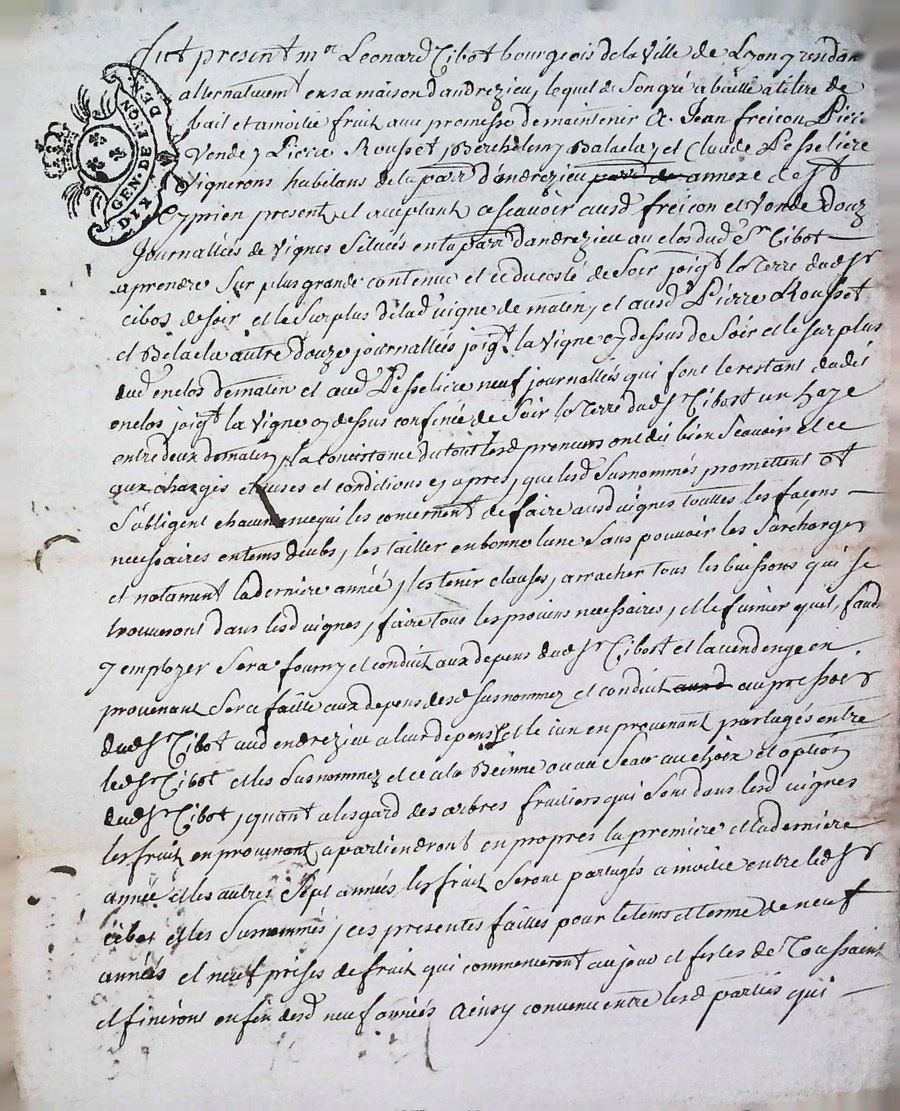 GEN. DE LYON DIX DEN.
fut present mr Leonard Cibot bourgeois de la ville de Lyon y rendant
alternatuemt en sa maison dandrezieu, lequel de son gré a baillé a titre de
bail et a moitie fruit avec promesse de maintenir a Jean freicon Pierre
Vende, Pierre Rousset, Berthelemy Balaela, et Claude Pesseliere
vignerons habitans de la parr dandrezieu parr de annexe de St
Cyprien present et acceptant a scavoir ausd freicon et Vonde Douz
Journallées de vignes Scituées en la parr dandrezieu au clos dud Sr Cibot
a prendre Sur plus grande contenue et ce du costé de Soir joigt la Terre dud Sr
cibot de soir et le surplus de lad vigne de matin, et ausd Pierre Rousset
et Belaela autre Douze journallées joigt la vigne cy dessus de Soir et le surplus
dud enclos de matin et aud Pesseliere neuf journallées qui font le restant dudit
enclos joigt la vigne cy dessus confinée de Soir la Terre dud Sr Cibost un haye
entre deux de matin, la consistance du tout lesd preneurs ont dit bien Scavoir et ce
aux charges clauses et conditions cy apres, que lesd Susnommés promettent et
S'obligent chacun en ce qui les concernent de faire ausd vignes touttes les façons
necessaires en tems deubs, les tailler en bonne lune Sans pouvoir les Surcharger
et notament la derniere année, les tenir clauses, arracher tous les buissons qui se
trouveront dans lesd vignes, faire tous les provins necessaires, et le fumier quil faudra
y employer Sera fourny et conduit aux depens dud Sr Cibost et la vendenge en
provenant Sera faitte aux depens desd Susnommez et conduit aud au pressoir
dud Sr Cibot aud endrezieu a leur depens et le vin en provenant partagés entre
led Sr Cibot et les Susnommez et ce a la Beinne ou au Seau au choix et option
dud Sr Cibot, quant a lesgard des arbres fruitiers qui Sont dans lesd vignes
les fruit en provenant apartiendront en propres la premiere et la derniere
année et les autres Sept années les fruit Seront partagés a moitie entre led Sr
cibot et les Susnommés, ces presentes faittes pour le tems et terme de neuf
années et neuf prises de fruit qui commenceront au jour et festes de Toussaint
et finiront en fin desd neuf années Ainsy convenu entre lesd parties qui